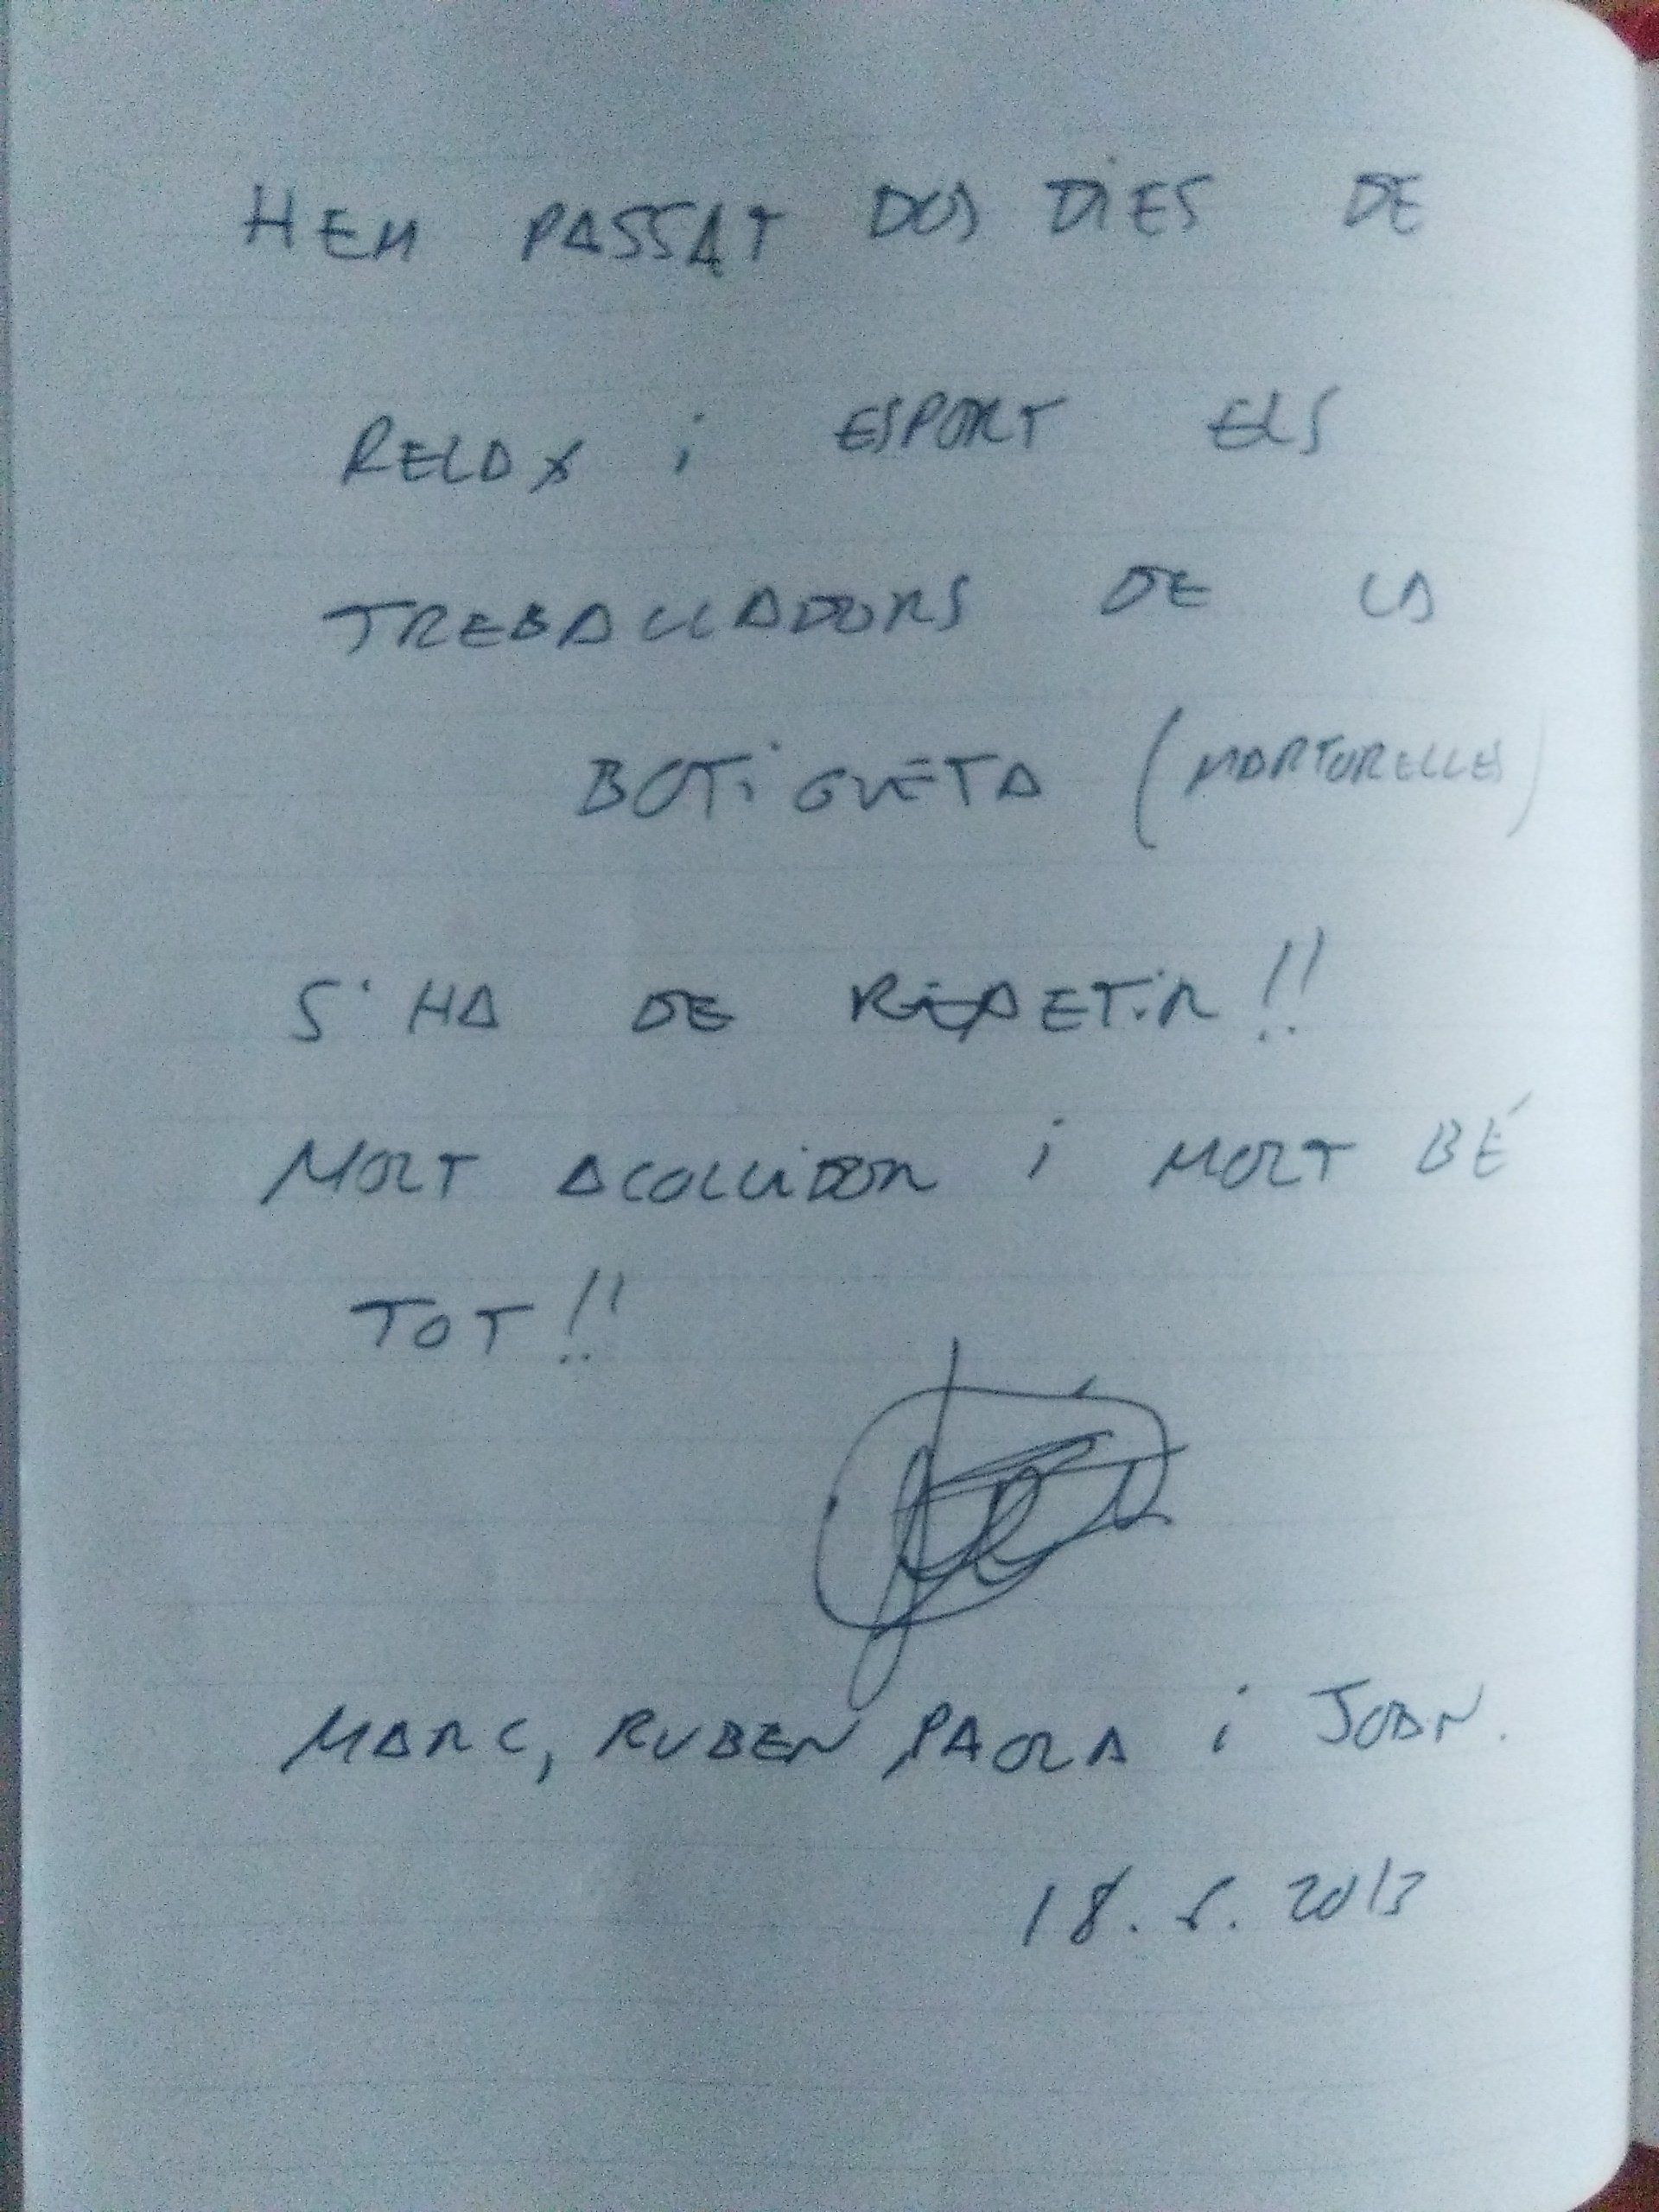 HEM PASSAT DOS DIES DE
RELAX i ESPORT ELS
TREBALLADORS DE LA
BOTIGUETA (MARTORELLES)
S'HA DE REPETIR!!
MOLT ACOLLIDOR i MOLT BÉ
TOT!!
MARC, RUBEN PAOLA i JOAN.
18. 5. 2013